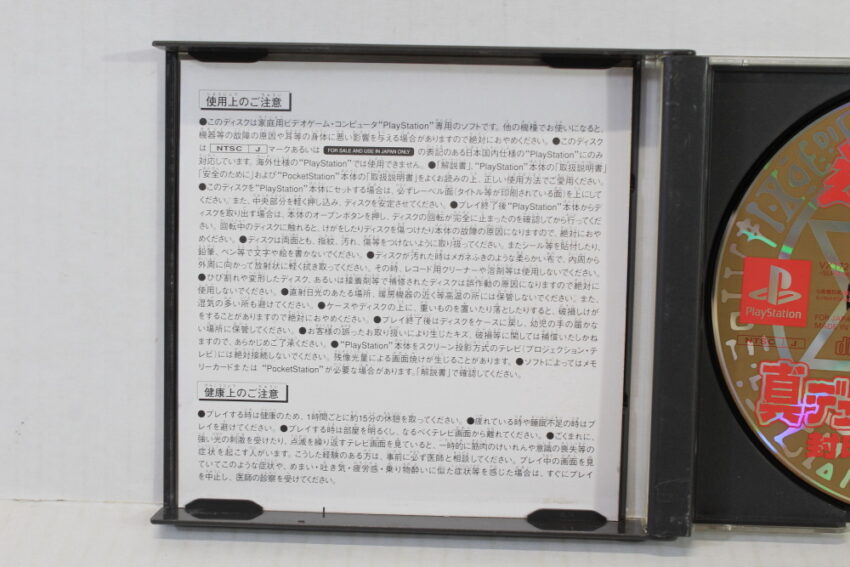 使用上のご注意
●このディスクは家庭用ビデオゲーム・コンピュータ“PlayStation”専用のソフトです。他の機種でお使いになると、
機器等の故障の原因や耳等の身体に悪い影響を与える場合がありますので絶対におやめください。●このディスク
は NTSC J マークあるいは FOR SALE AND USE IN JAPAN ONLY の表記のある日本国内仕様の“PlayStation”にのみ
対応しています。海外仕様の“PlayStation”では使用できません。●「解説書」、“PlayStation”本体の「取扱説明書」
「安全のために」および“PocketStation”本体の「取扱説明書」をよくお読みの上、正しい使用方法でご愛用ください。
●このディスクを“PlayStation”本体にセットする場合は、必ずレーベル面(タイトル等が印刷されている面)を上にして
ください。また、中央部分を軽く押し込み、ディスクを安定させてください。●プレイ終了後“PlayStation”本体からデ
ィスクを取り出す場合は、本体のオープンボタンを押し、ディスクの回転が完全に止まったのを確認してから行ってくだ
さい。回転中のディスクに触れると、けがをしたりディスクを傷つけたり本体の故障の原因になりますので、絶対におや
めください。●ディスクは両面とも、指紋、汚れ、傷等をつけないように取り扱ってください。またシール等を貼付したり、
鉛筆、ペン等で文字や絵を書かないでください。●ディスクが汚れた時はメガネふきのような柔らかい布で、内周から
外周に向かって放射状に軽く拭き取ってください。その時、レコード用クリーナーや溶剤等は使用しないでください。
●ひび割れや変形したディスク、あるいは接着剤等で補修されたディスクは誤作動の原因になりますので絶対に
使用しないでください。●直射日光のあたる場所、暖房機器の近く等高温の所には保管しないでください。また、
湿気の多い所も避けてください。●ケースやディスクの上に、重いものを置いたり落としたりすると、破損しけが
をすることがありますので絶対におやめください。●プレイ終了後はディスクをケースに戻し、幼児の手の届かな
い場所に保管してください。●お客様の誤ったお取り扱いにより生じたキズ、破損等に関しては補償いたしかね
ますので、あらかじめご了承ください。●“PlayStation”本体をスクリーン投影方式のテレビ(プロジェクション・テ
レビ)には絶対接続しないでください。残像光量による画面焼けが生じることがあります。●ソフトによってはメモ
リーカードまたは“PocketStation”が必要な場合があります。「解説書」で確認してください。
健康上のご注意
●プレイする時は健康のため、1時間ごとに約15分の休憩を取ってください。●疲れている時や睡眠不足の時はプ
レイを避けてください。●プレイする時は部屋を明るくし、なるべくテレビ画面から離れてください。●ごくまれに、
強い光の刺激を受けたり、点滅を繰り返すテレビ画面を見ていると、一時的に筋肉のけいれんや意識の喪失等の
症状を起こす人がいます。こうした経験のある方は、事前に必ず医師と相談してください。プレイ中の画面を見
ていてこのような症状や、めまい・吐き気・疲労感・乗り物酔いに似た症状等を感じた場合は、すぐにプレイ
を中止し、医師の診察を受けてください。
PlayStation
NTSC J
真デュ